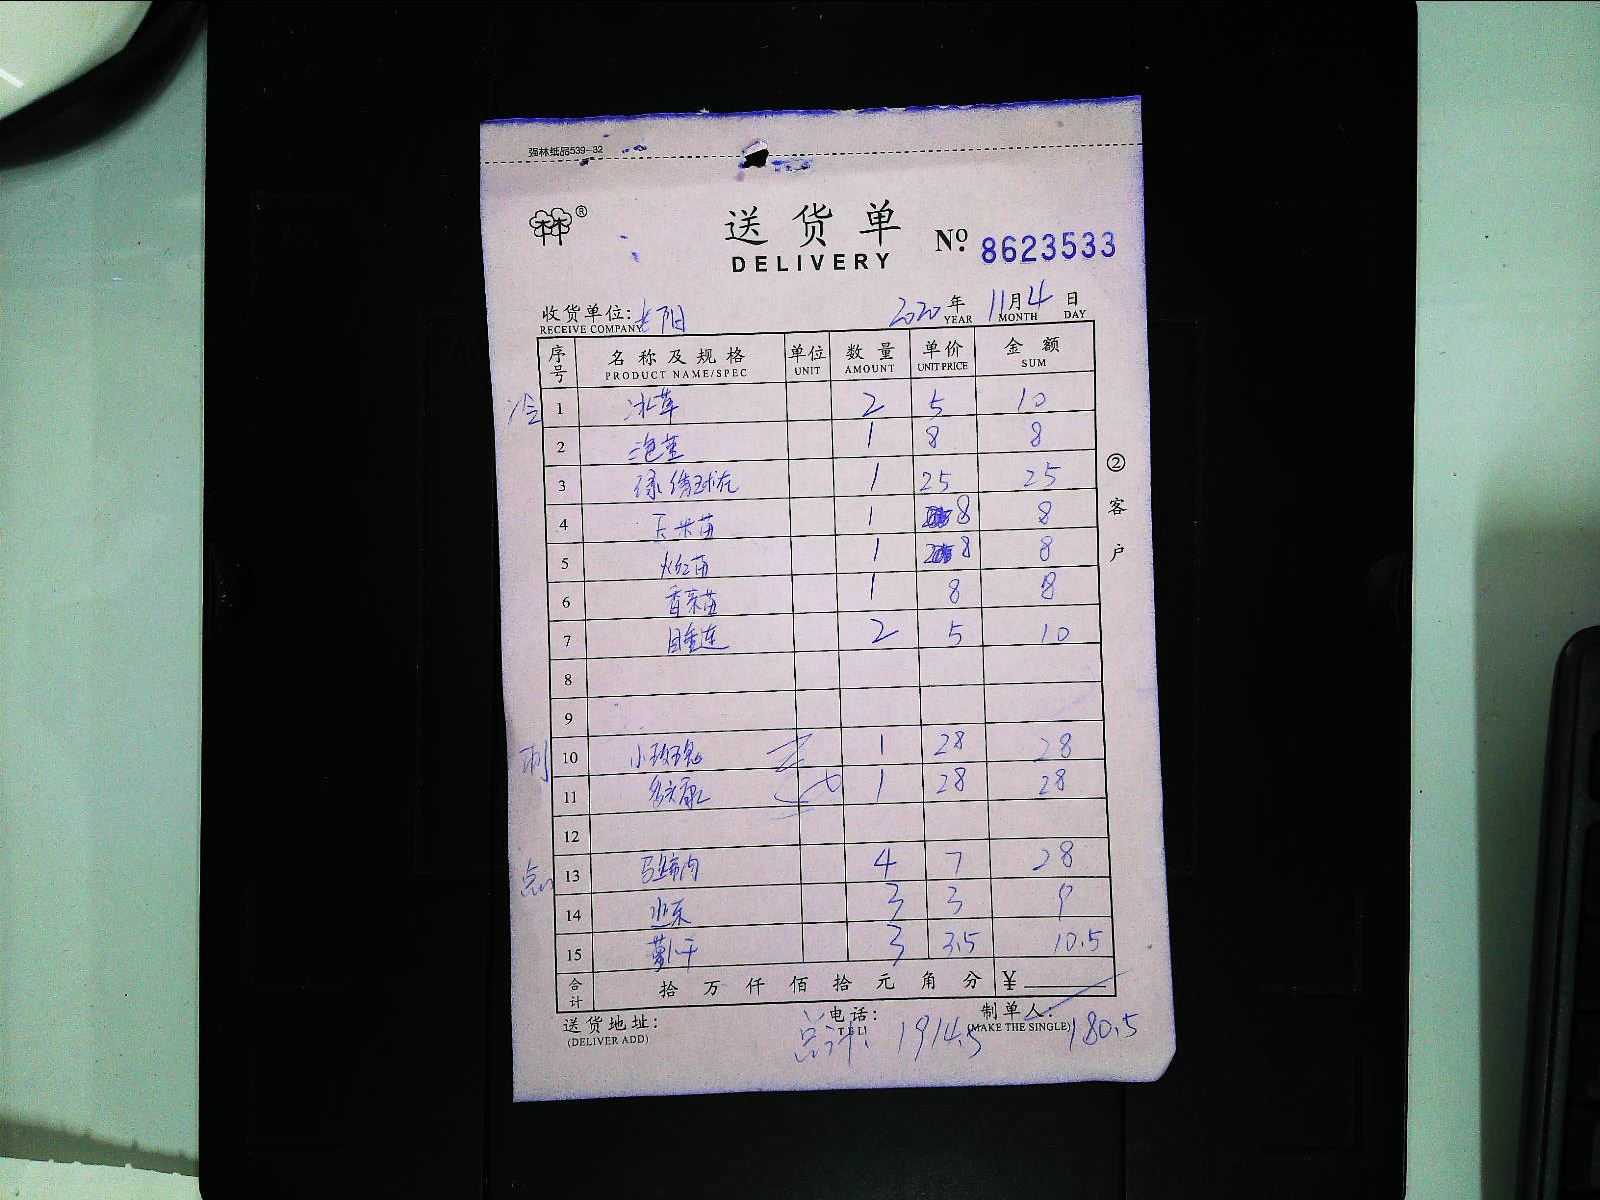 强林纸品539-32
®
送货单
DELIVERY
No. 8623533
收货单位: 长阳 2020年 11月 4日
RECEIVE COMPANY YEAR MONTH DAY
序号 名称及规格 单位 数量 单价 金额
PRODUCT NAME/SPEC UNIT AMOUNT UNIT PRICE SUM
冷 1 冰草 2 5 10
2 泡茎 1 8 8
3 绿绣球花 1 25 25
4 玉米苗 1 8 8
5 火红苗 1 8 8
6 香菜苗 1 8 8
7 目重连 2 5 10
8
9
10 小玫瑰 1 28 28
11 1 28 28
12
点 13 马蹄肉 4 7 28
14 3 3 9
15 萝卜干 3 3.5 10.5
合计 拾 万 仟 佰 拾 元 角 分 ¥
②客户
送货地址: 电话: 制单人:
(DELIVER ADD) TEL (MAKE THE SINGLE)
总计: 1914.5 180.5